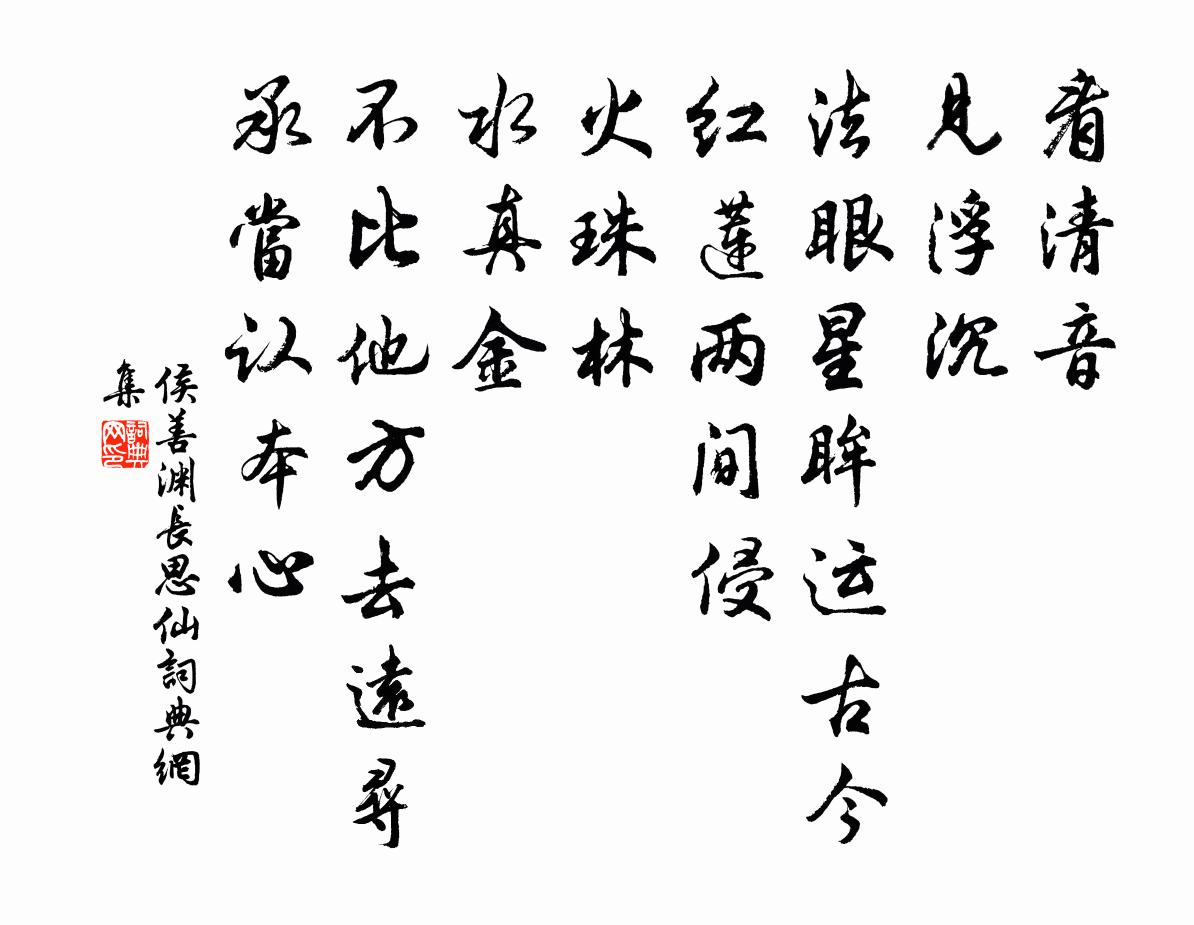 看清音
見浮沉
法眼星眸运古今
红蓮两间侵
火珠林
水真金
不比他方去遠尋
承當认本心
侯善渊長思仙詞典網
集
詞典
网印